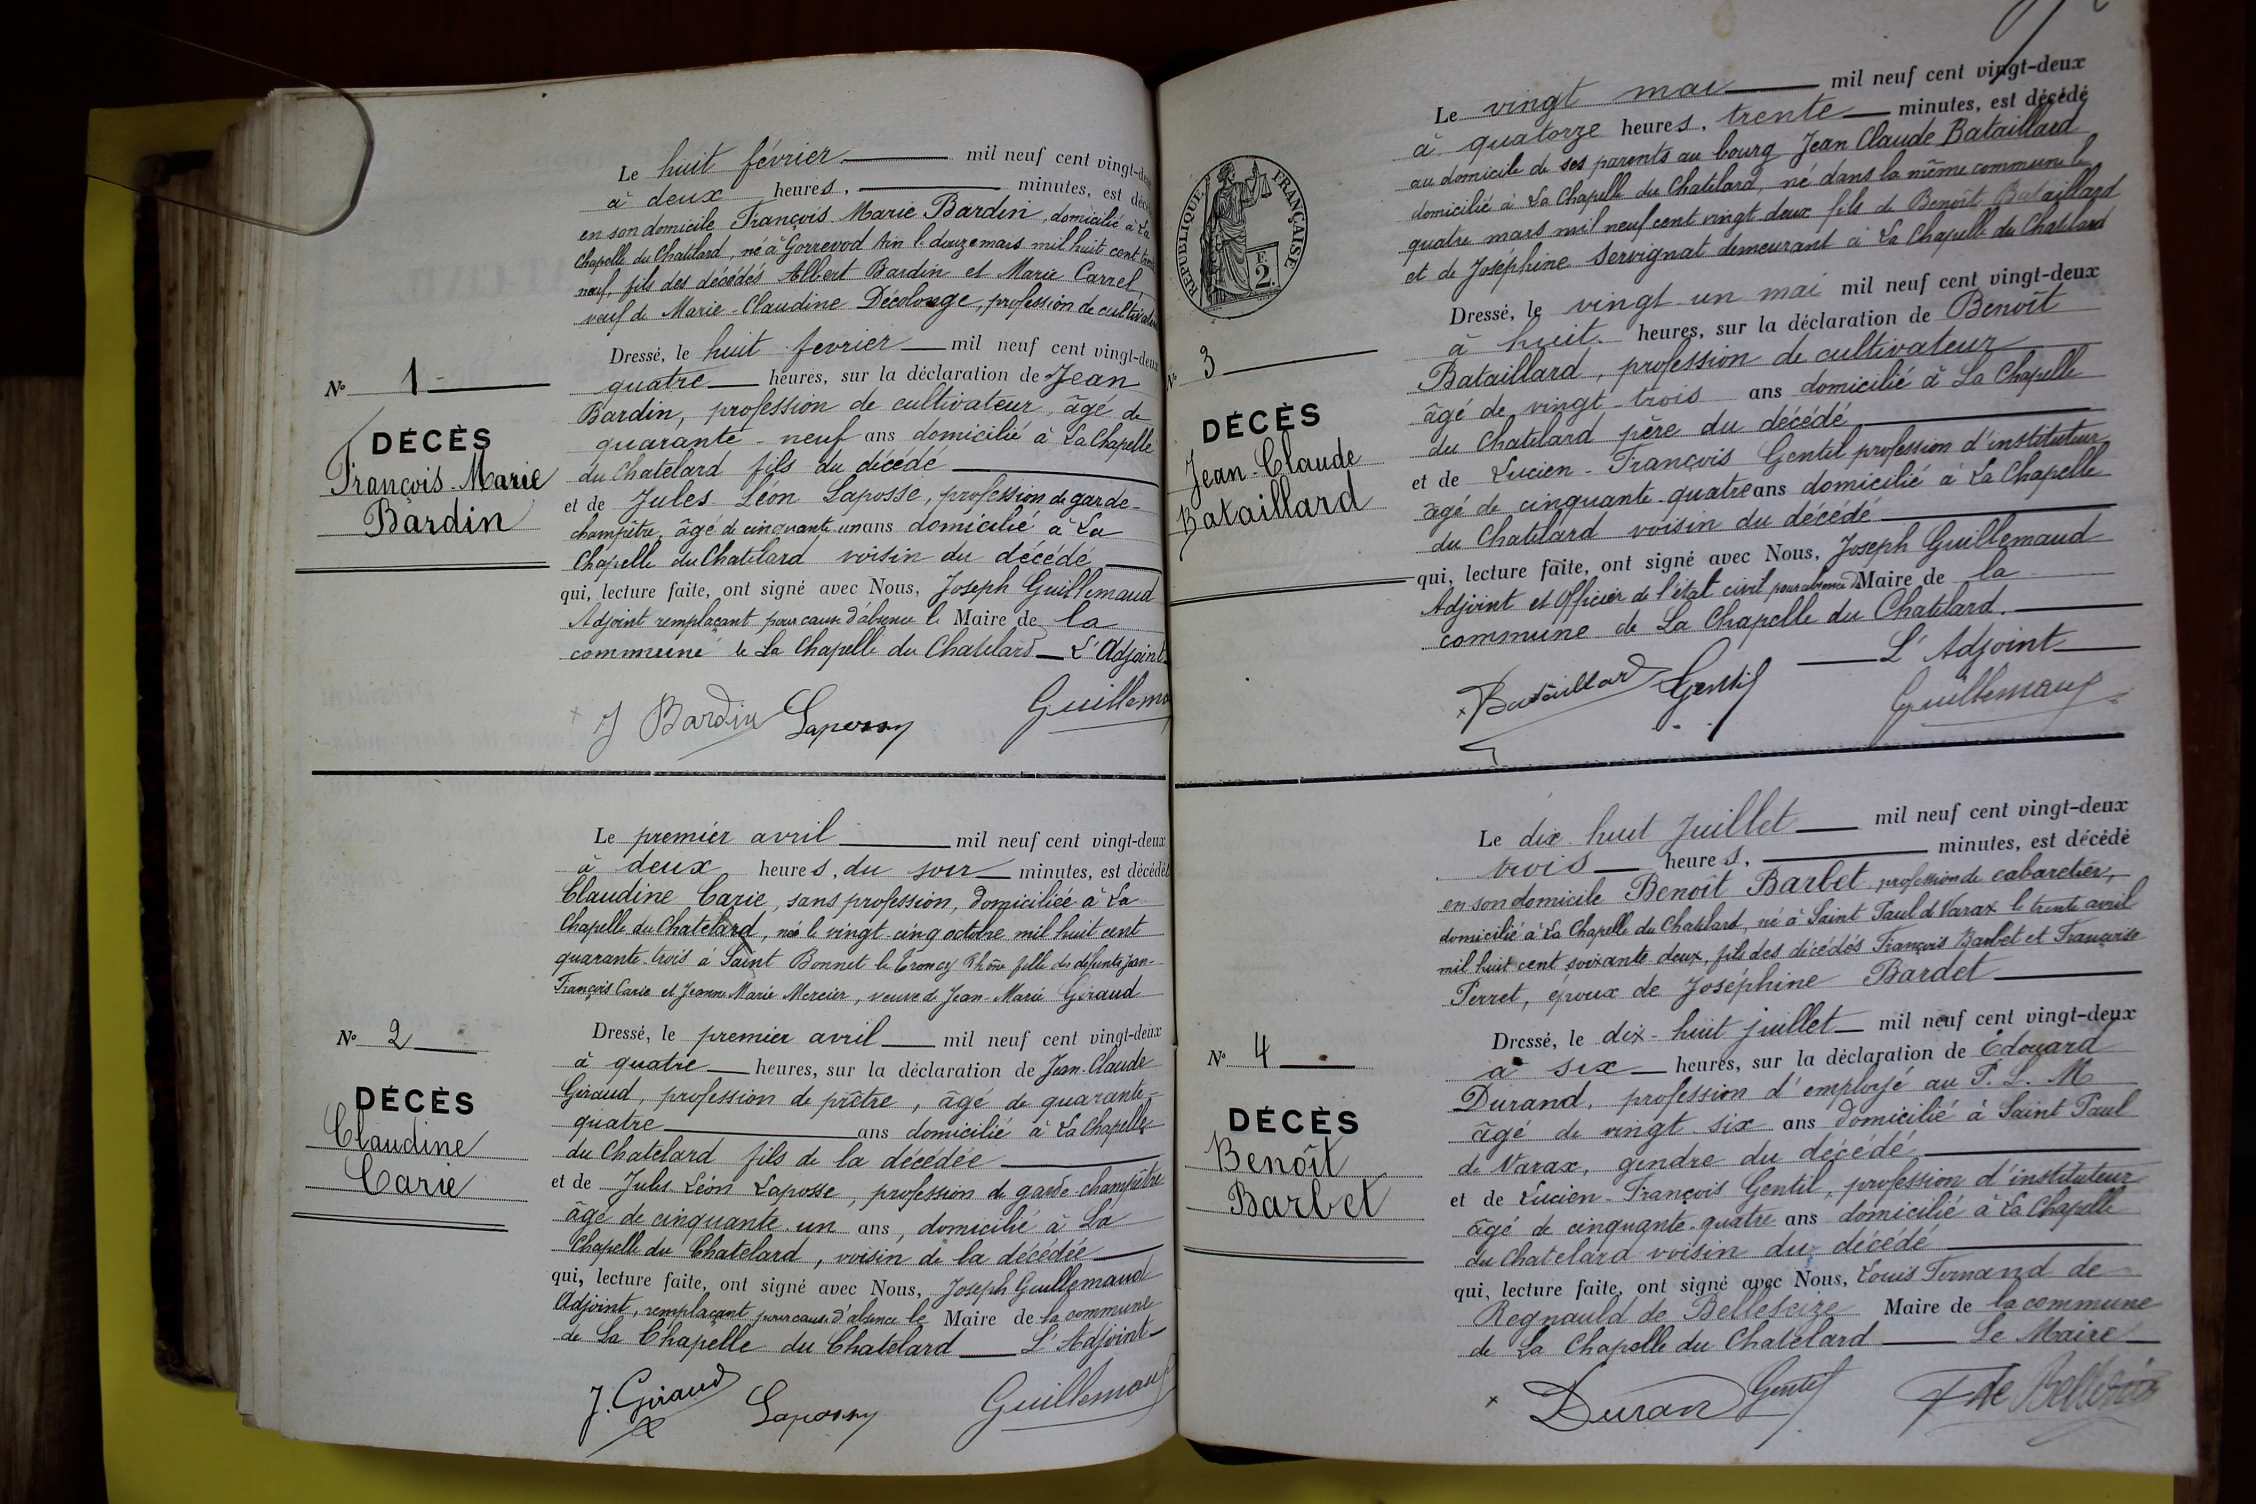 Le huit février mil neuf cent vingt-deux
à deux heures, minutes, est décé
en son domicile François Marie Bardin, domicilié à La
Chapelle du Chatelard, né à Gorrevod Ain le douze mars mil huit cent trente
neuf, fils des décédés Albert Bardin et Marie Carrel,
veuf de Marie-Claudine Décolonge, profession de cultivateur
Dressé, le huit fevrier mil neuf cent vingt-deux
quatre heures, sur la déclaration de Jean
Bardin, profession de cultivateur, âgé de
quarante-neuf ans domicilié à La Chapelle
du Chatelard fils du décédé
et de Jules Léon Laposse, profession de garde-
champêtre, âgé de cinquante un ans domicilié à La
Chapelle du Chatelard voisin du décédé
qui, lecture faite, ont signé avec Nous, Joseph Guillemaud
Adjoint remplaçant pour cause d'absence le Maire de la
commune de La Chapelle du Chatelard L'Adjoint
J Bardin Laposse Guillema
No 1
DÉCÈS
François-Marie
Bardin
Le premier avril mil neuf cent vingt-deux
à deux heures, du soir minutes, est décédée
Claudine Carie, sans profession, domiciliée à La
Chapelle du Chatelard, née le vingt-cinq octobre mil huit cent
quarante-trois à Saint Bonnet le Troncy Rhône fille des defunts Jean-
François Carie et Jeanne Marie Mercier, veuve de Jean-Marie Giraud
Dressé, le premier avril mil neuf cent vingt-deux
à quatre heures, sur la déclaration de Jean-Claude
Giraud, profession de prêtre, âgé de quarante-
quatre ans domicilié à La Chapelle
du Chatelard fils de la décédée
et de Jules Léon Laposse, profession de garde-champêtre
âgé de cinquante un ans, domicilié à La
Chapelle du Chatelard, voisin de la décédée
qui, lecture faite, ont signé avec Nous, Joseph Guillemaud
Adjoint, remplaçant pour cause d'absence le Maire de la commune
de La Chapelle du Chatelard L'Adjoint
J. Giraud Laposse Guillemaud
No 2
DÉCÈS
Claudine
Carie
Le vingt mai mil neuf cent vingt-deux
à quatorze heures, trente minutes, est décédé
au domicile de ses parents au bourg Jean Claude Bataillard
domicilié à La Chapelle du Chatelard, né dans la même commune le
quatre mars mil neuf cent vingt deux fils de Benoît Bataillard
et de Joséphine Servignat demeurant à La Chapelle du Chatelard
Dressé, le vingt un mai mil neuf cent vingt-deux
à huit heures, sur la déclaration de Benoît
Bataillard, profession de cultivateur
âgé de vingt-trois ans domicilié à La Chapelle
du Chatelard père du décédé
et de Lucien-François Gentil profession d'instituteur
âgé de cinquante-quatre ans domicilié à La Chapelle
du Chatelard voisin du décédé
qui, lecture faite, ont signé avec Nous, Joseph Guillemaud
Adjoint et Officier de l'état civil pour absence du Maire de la
commune de La Chapelle du Chatelard.
L'Adjoint
Bataillard Gentil Guillemaud
RÉPUBLIQUE FRANÇAISE
F.
2.
No 3
DÉCÈS
Jean-Claude
Bataillard
Le dix huit Juillet mil neuf cent vingt-deux
trois heures, minutes, est décédé
en son domicile Benoît Barbet, profession de cabaretier,
domicilié à La Chapelle du Chatelard, né à Saint Paul de Varax le trente avril
mil huit cent soixante deux, fils des décédés François Barbet et Françoise
Perret, époux de Joséphine Bardet
Dressé, le dix-huit juillet mil neuf cent vingt-deux
à six heures, sur la déclaration de Edouard
Durand, profession d'employé au P. L. M
âgé de vingt-six ans domicilié à Saint Paul
de Varax, gendre du décédé
et de Lucien-François Gentil, profession d'instituteur
âgé de cinquante-quatre ans domicilié à La Chapelle
du Chatelard voisin du décédé
qui, lecture faite, ont signé avec Nous, Louis Fernand de
Regnauld de Bellescize Maire de la commune
de La Chapelle du Chatelard Le Maire
Durand Gentil F de Bellescize
No 4
DÉCÈS
Benoît
Barbet